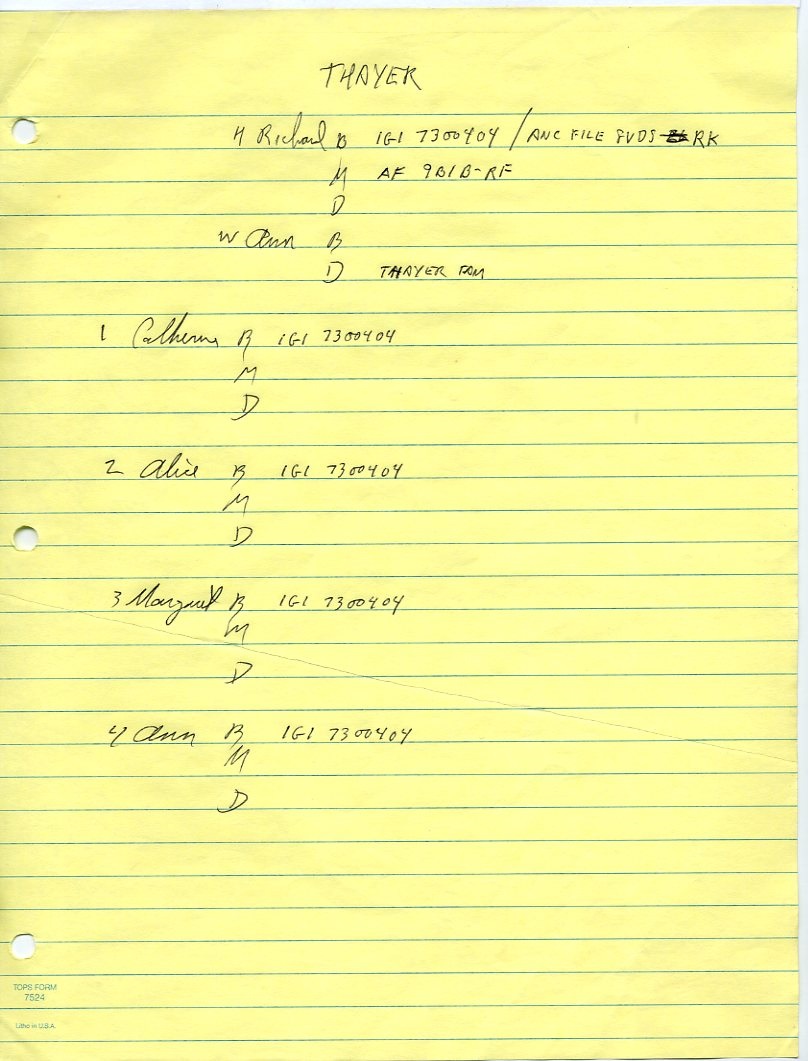 THAYER
H Richard B IGI 7300404 / ANC FILE 8VDS RK
M AF 9B1B-RF
D
W Ann B
D THAYER FAM
1 Catherine B IGI 7300404
M
D
2 Alice B IGI 7300404
M
D
3 Margaret B IGI 7300404
M
D
4 Ann B IGI 7300404
M
D
TOPS FORM
7524
Litho in U.S.A.